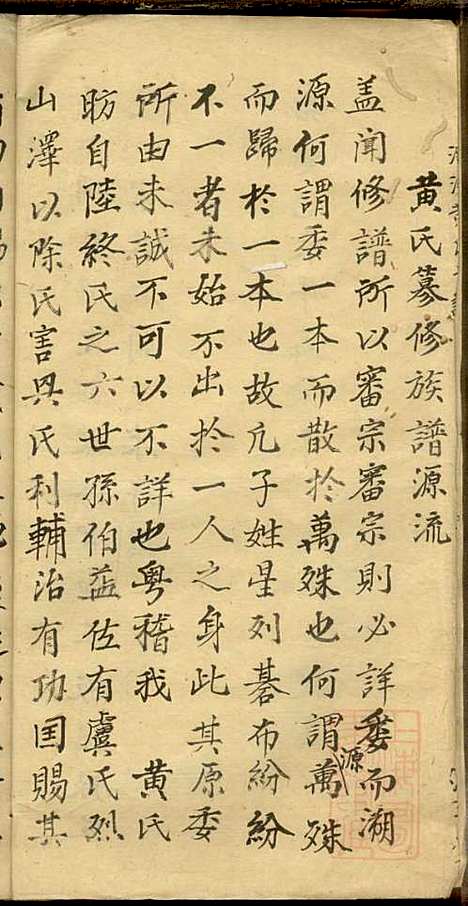 黄氏纂修族譜源流
盖聞修譜所以審宗審宗則必詳委而溯
源何謂委一本而散扵萬殊也何謂源萬殊
而歸扵一本也故凢子姓星列碁布紛紛
不一者未始不出扵一人之身此其原委
所由未誠不可以不詳也粤稽我 黄氏
昉自陸終氏之六世孫伯益佐有虞氏烈
山澤以除民害興民利輔治有功囯賜其